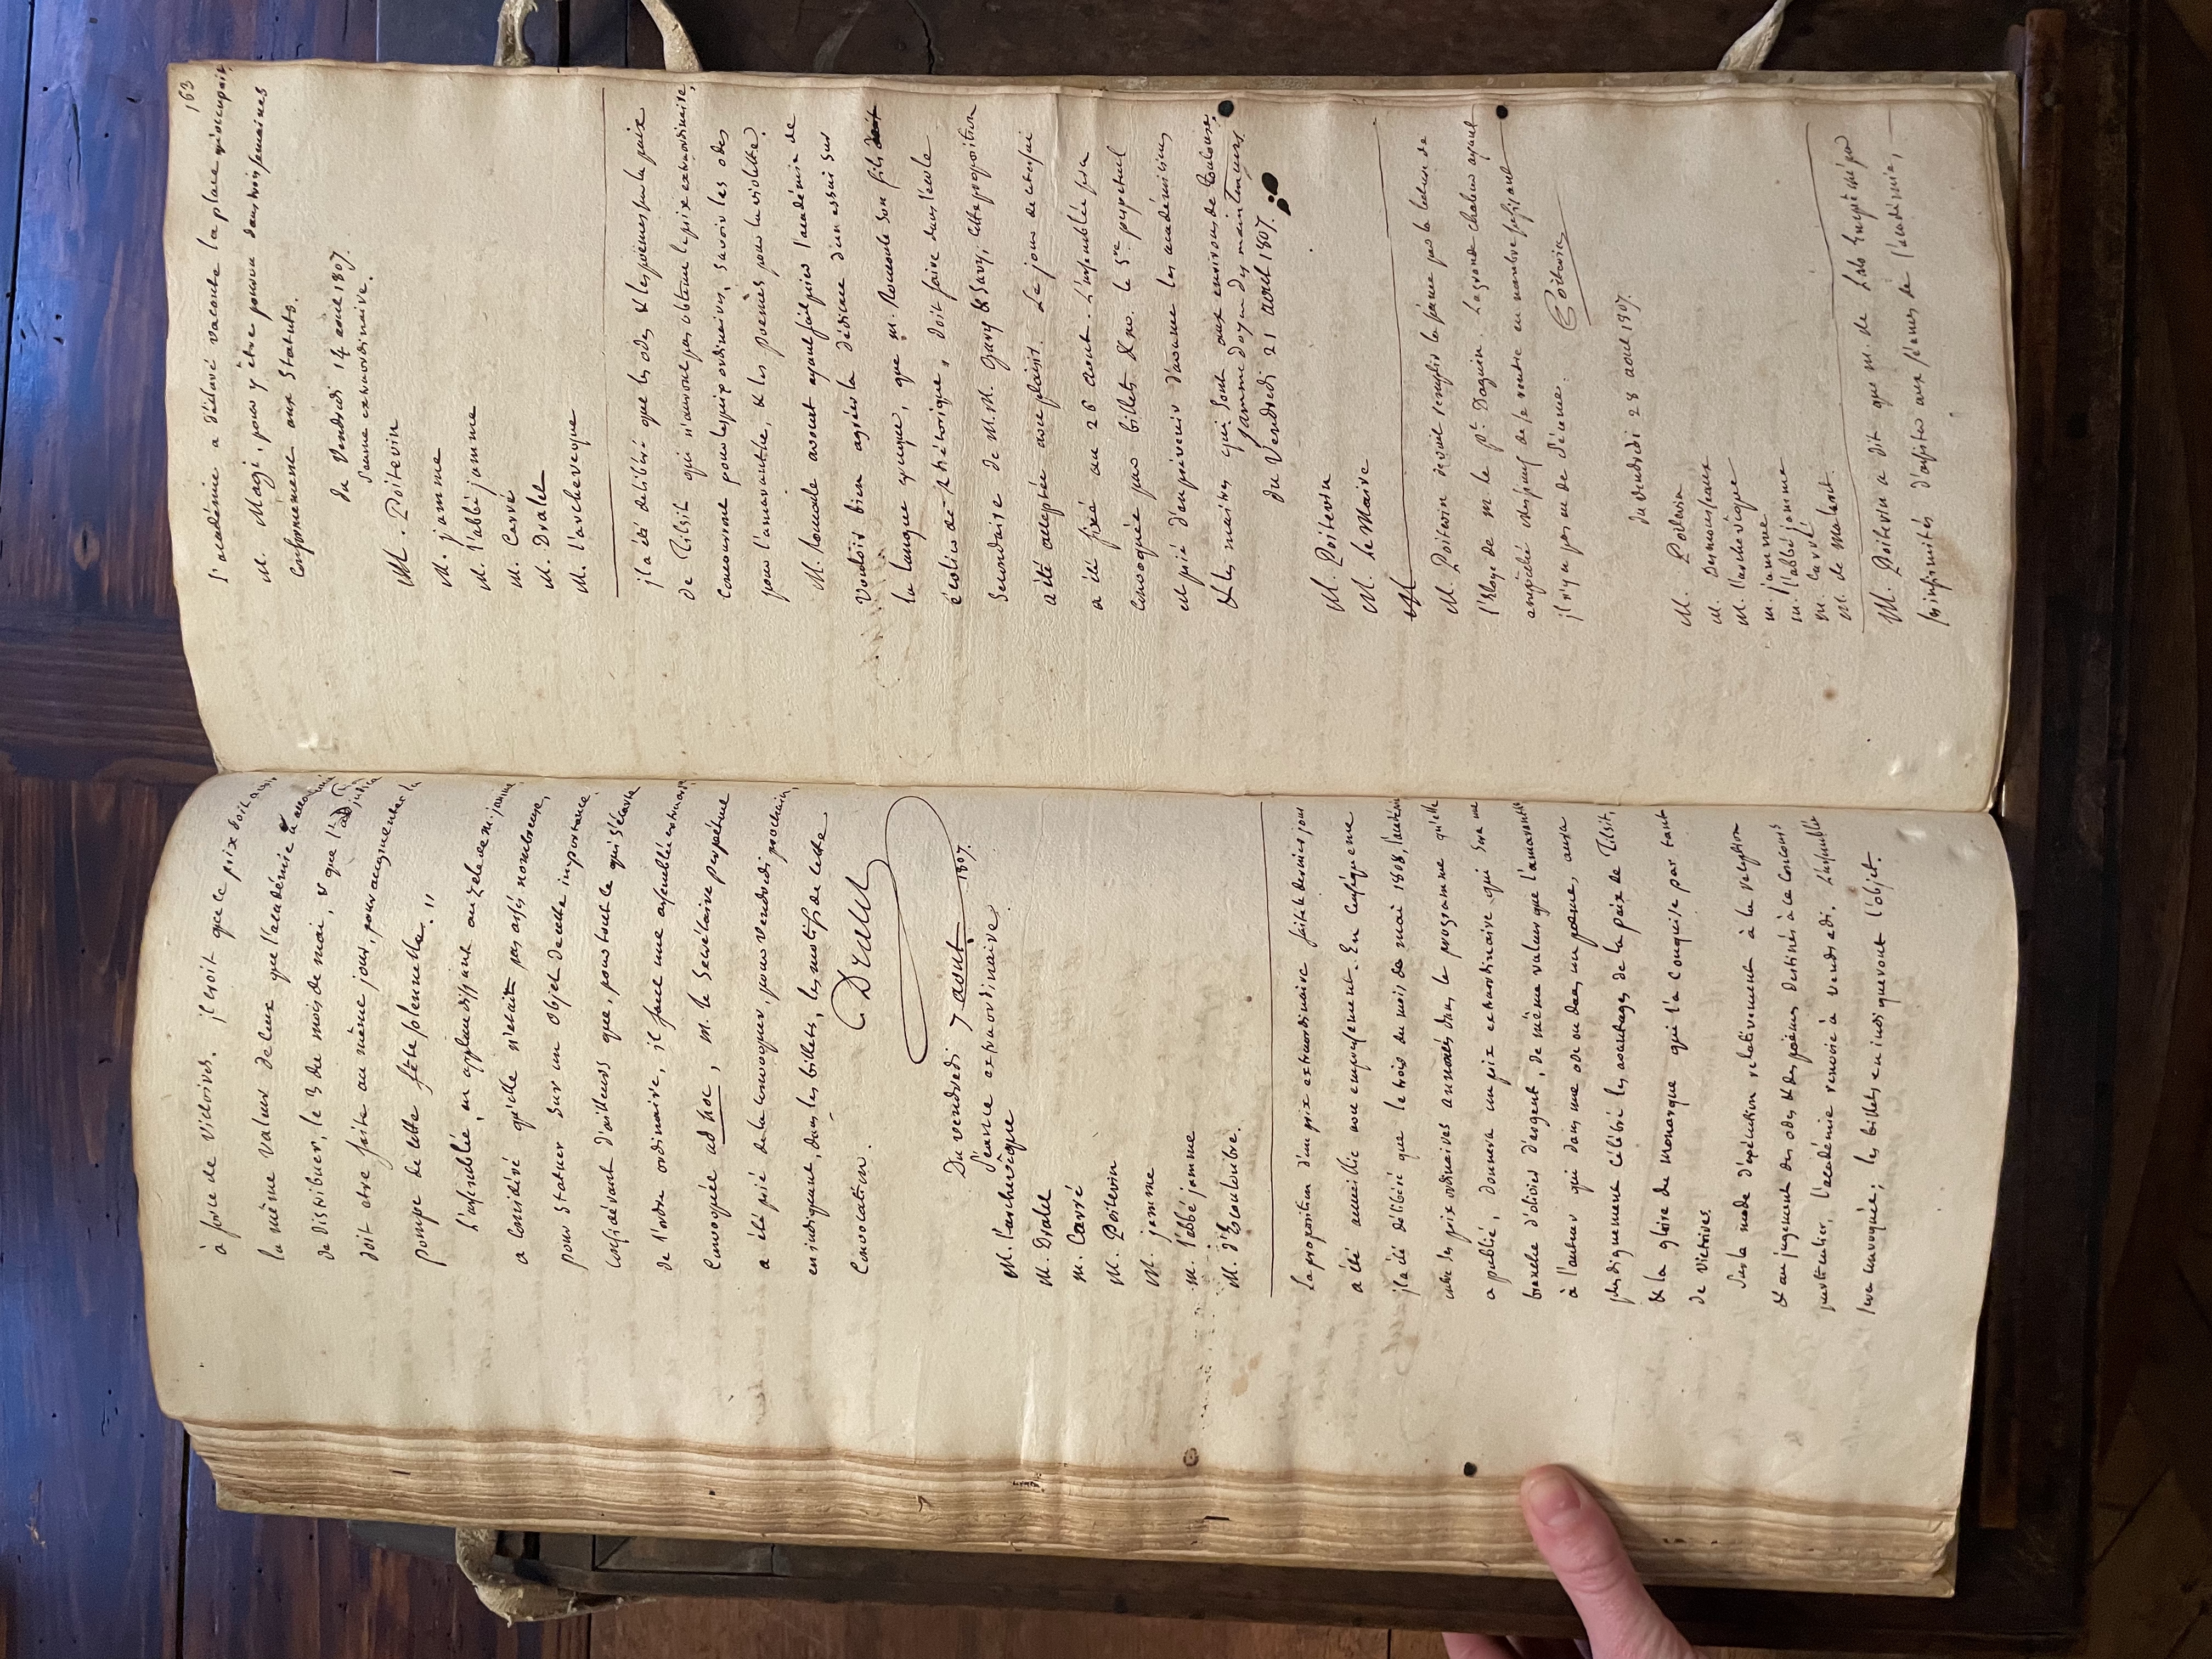 à force de victoires. il croit que ce prix doit avoir
la même valeur de ceux que l'académie a accoutumé
de distribuer, le 3 du mois de mai, & que l'adjudication
doit etre faite au même jour, pour augmenter la
pompe de cette fête solennelle. "
L'assemblée, en applaudissant au zele de m. jamme
a considéré qu'elle n'etait pas assés nombreuse,
pour statuer sur un objet de cette importance.
Considérant d'ailleurs que, pour tout ce qui s'écarte
de l'ordre ordinaire, il faut une assemblée extraord.re
Convoquée ad hoc, m. le Secrétaire perpétuel
a été prié de la convoquer, pour vendredi prochain,
en indiquant, dans les billets, les motifs de cette
Convocation.
Dralet
Du vendredi 7 aout 1807.
Séance extraordinaire.
M. l'archevêque
M. Dralet
M. Carré
M. Poitevin
M. jamme
M. l'abbé jamme
M. d'Escouloubre.
La proposition d'un prix extraordinaire faite le dernier jour
a été accueillie avec empressement. En Conséquence
il a été délibéré que le trois du mois de mai 1808, l'académie
outre les prix ordinaires annoncés dans le programme qu'elle
a publié, donnera un prix extraordinaire qui sera une
branche d'olivier d'argent, de même valeur que l'amaranthe
à l'auteur qui dans une ode ou dans un poème, aura
plus dignement célébré les avantages de la paix de Tilsit,
& la gloire du monarque qui l'a Conquise par tant
de victoires.
Sur le mode d'exécution relativement à la réception
& au jugement des odes & des poèmes destinés à ce concours
particulier, l'académie renvoie à vendredi. L'assemblée
sera convoquée; les billets en indiqueront l'objet.
163
L'académie a déclaré vacante la place qu'occupait
M. Magi, pour y être pourvu dans trois semaines
Conformément aux Statuts.
du Vendredi 14 août 1807.
Séance extraordinaire.
M. Poitevin
M. jamme
M. l'abbé jamme
M. Carré
M. Dralet
M. l'archeveque
il a été délibéré que les odes & les poèmes sur la paix
de Tilsit qui n'auront pas obtenu le prix extraordinaire,
concourront pour les prix ordinaires, savoir les odes
pour l'amaranthe, & les poèmes pour la violette.
M. Roucoule avocat ayant fait prier l'académie de
Vouloir bien agréer la dédicace d'un essai sur
la langue grecque, que m. Roucoule son fils
écolier de rhétorique, doit faire dans l'école
Secondaire de M.M. Gary & Savy, cette proposition
a été acceptée avec plaisir. Le jour de cet essai
a été fixé au 26 Aout. L'assemblée sera
Convoquée par billets & m. le S.re perpetuel
est prié d'en prévenir d'avance les académiciens
& les maitres qui sont aux environs de Toulouse.
Jamme doyen des mainteneurs.
du Vendredi 21 aout 1807.
M. Poitevin
M. le Maire
M. Poitevin devait remplir la séance par la lecture de
l'éloge de m. le p.t Daguin. La grande chaleur ayant
empêché chacun de se rendre en nombre suffisant
il n'y a pas eu de séance.
Poitevin
du vendredi 28 aout 1807.
M. Poitevin
M. Desmousseaux
M. l'archevêque
M. jamme
M. l'abbé jamme
M. Carré
M. de Malaret.
M. Poitevin a dit que m. de empêché par
ses infirmités d'assister aux séances de l'académie,